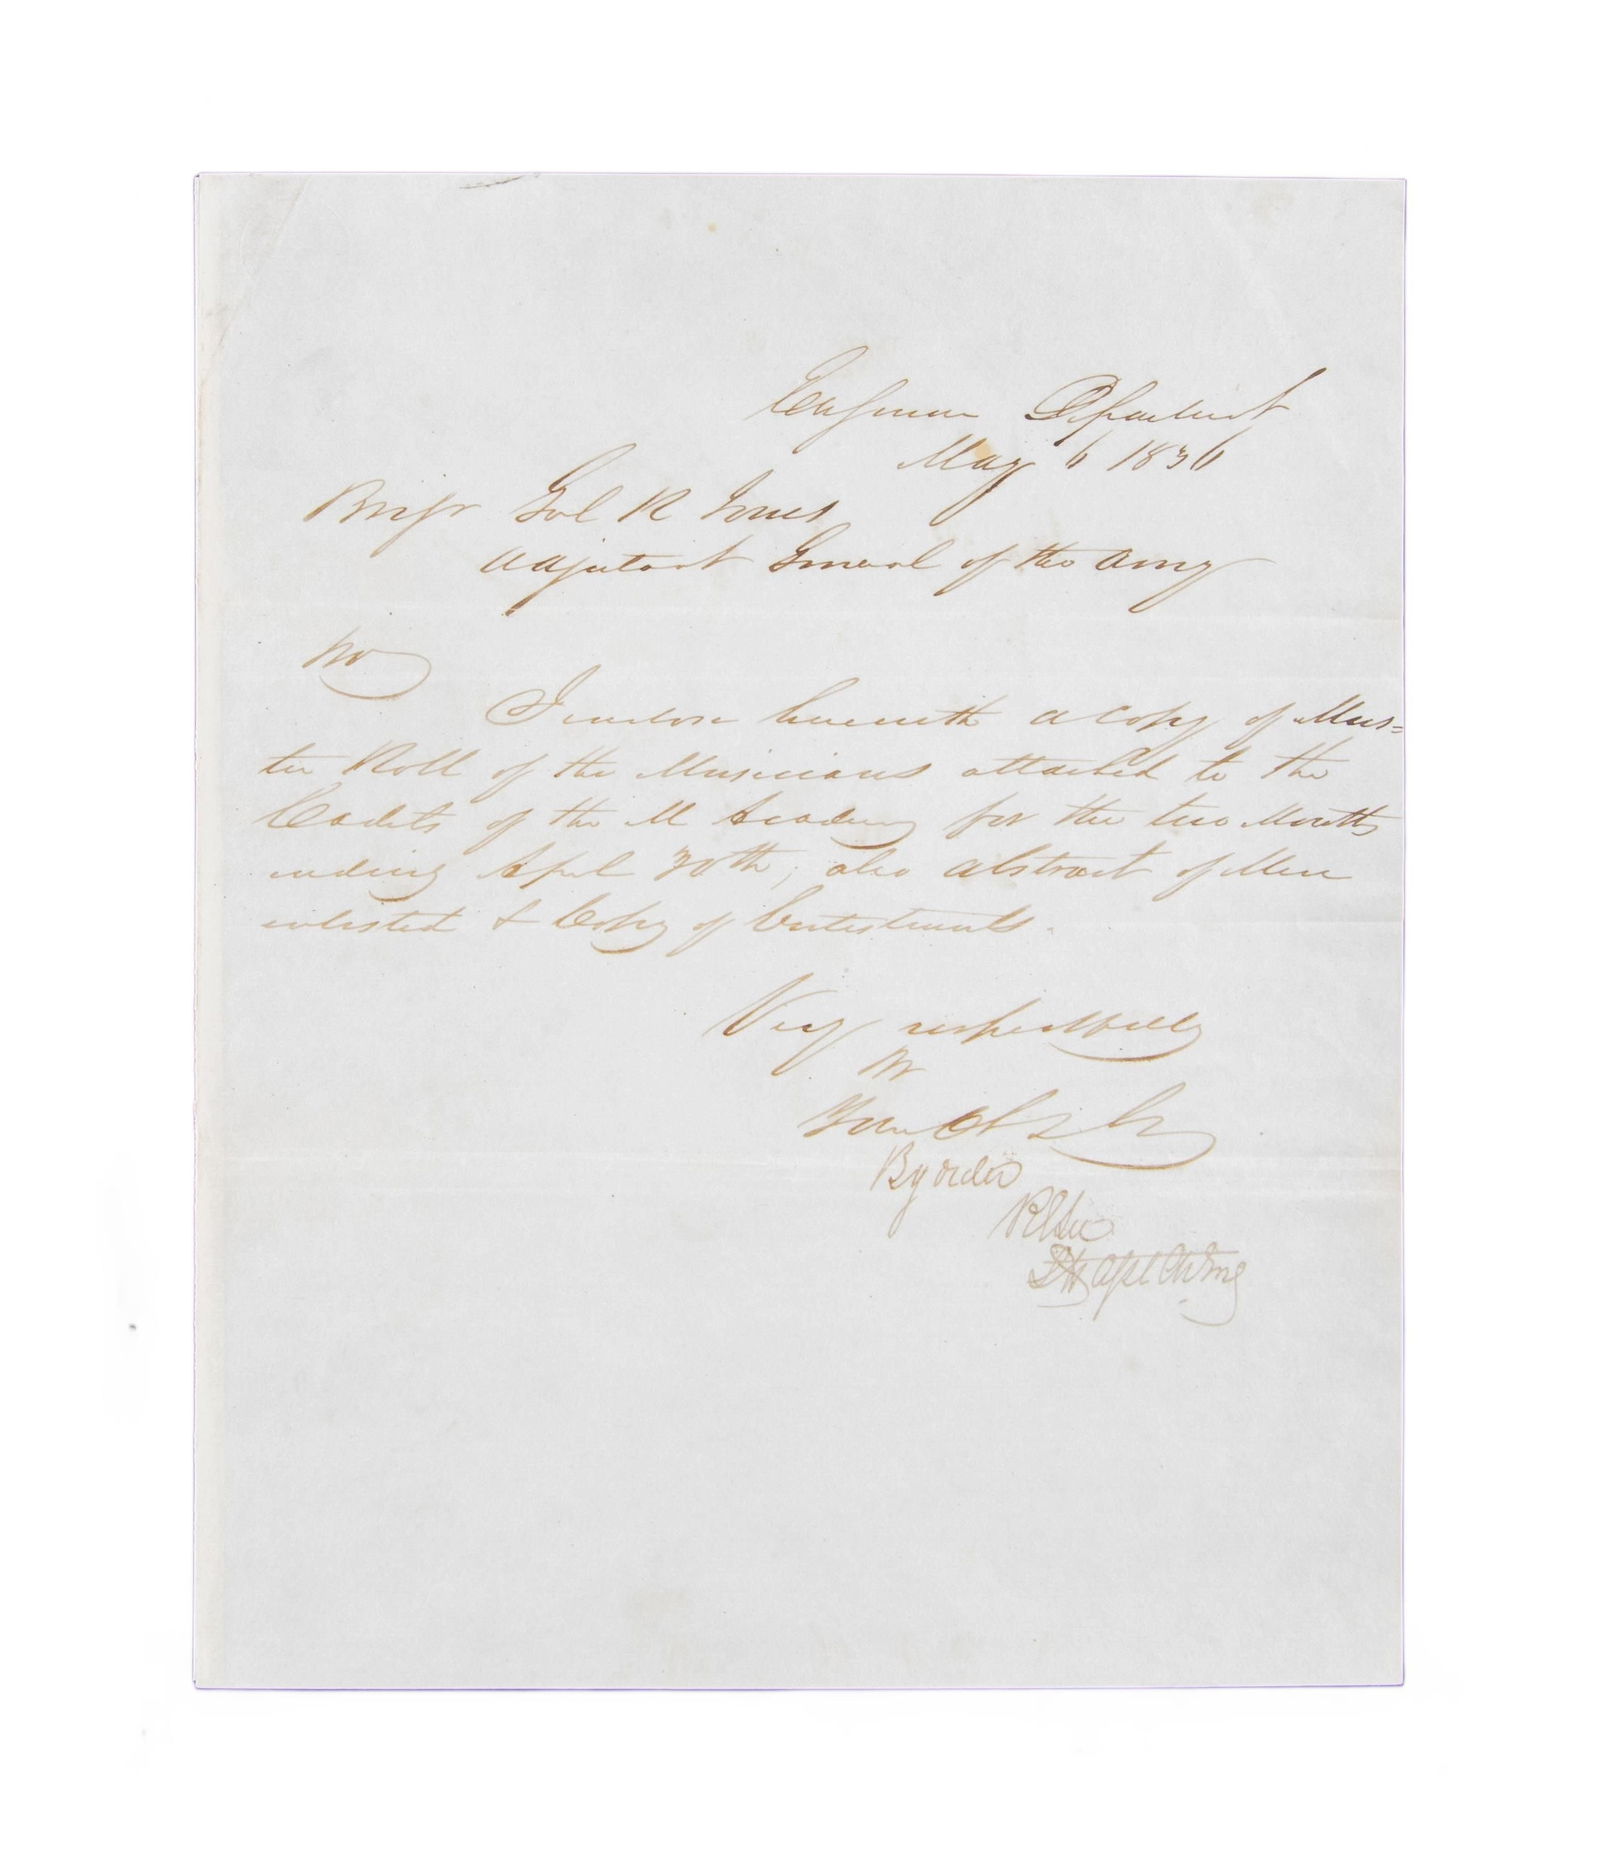 Engineer Department
May 6 1836
Brigr Genl R Jones
Adjutant General of the Army
Sir
I enclose herewith a copy of Mus=
ter Roll of the Musicians attached to the
Cadets of the M Academy for the two Months
ending April 30th, also abstract of Men
enlisted & Copy of Enlistments.
Very respectfully
Sir
Your Obt St
By order
RELee
Lt &